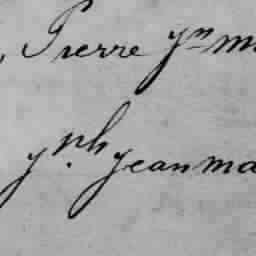 , Pierre yn m
yph jeanma